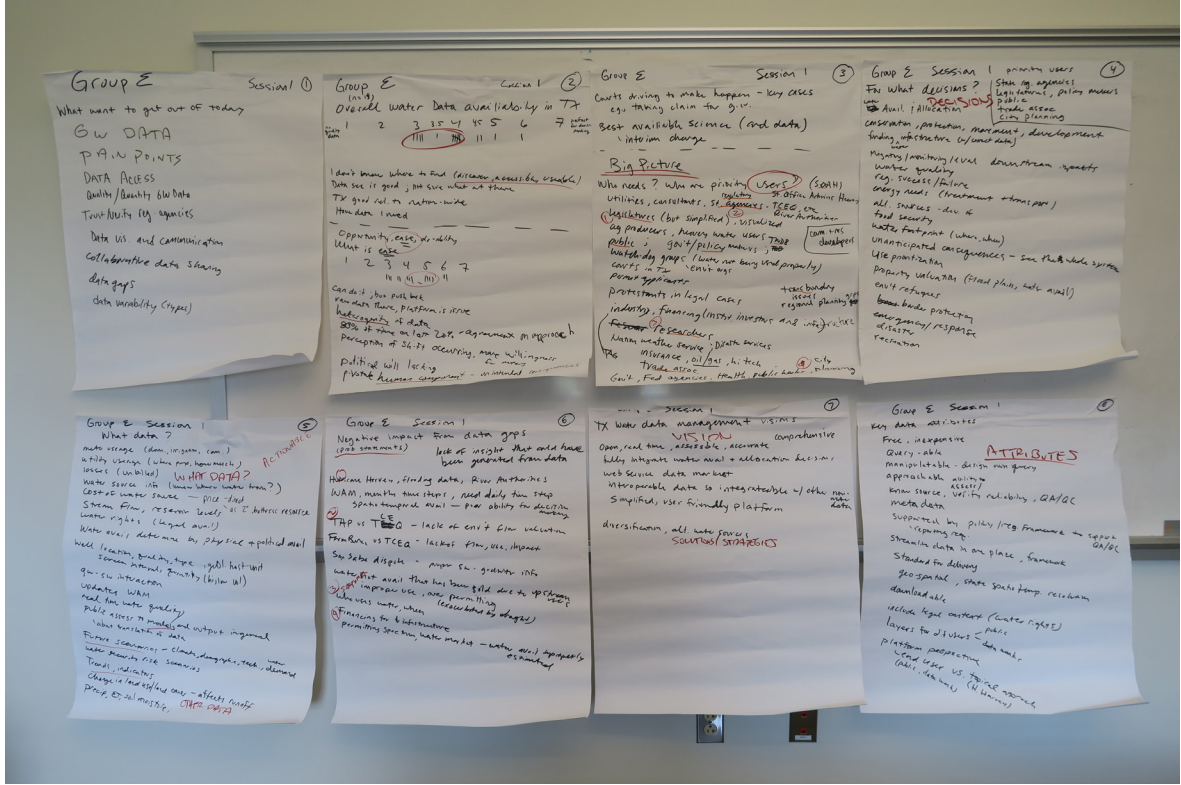 Group E Session 1 1
What want to get out of today
GW DATA
PAIN POINTS
DATA ACCESS
Quality/Quantity GW Data
Trust/Verify reg. agencies
Data vis. and communication
collaborative data sharing
data gaps
data variability (types)
Group E Session 1 2
Overall water Data availability in TX
1 2 3 3.5 4 4.5 5 6 7
I don't know where to find (discover, accessible, useable)
Data set is good, not sure what at there
TX good rel. to nation-wide
How data I need
Opportunity, ease,
What is ease
1 2 3 4 5 6 7
Can do it, but push back
raw data there, platform is issue
heterogeneity of data
80% of time on last 20% - agreement on approach
perception of shift occurring, more willingness
political will lacking
human component - unintended consequences
Group E Session 1 3
Courts driving to make happen - key cases
e.g. taking claim for g.w.
Best available science (and data)
interim change
Big Picture
Who needs? Who are priority users? (SOAH)
St. Office Admins Hearing
utilities, consultants, st. regulatory agencies - TCEQ, etc
River Authorities
1 legislatures (but simplified), visualized 2
ag producers, heavy water users
public; gov't/policy makers;
developers
watch-dog groups (water not being viewed property)
courts in TX env't orgs
permit applicants
transboundary issues
protestants in legal cases
regional planning
industry, financing (instit investors and infrastructure
researchers
weather service; Disaster services
insurance, oil/gas, hi tech
trade assoc 4 city planning
Gov't, Fed agencies, Health, public works,
Group E Session 1 priority users 4
For what decisions? State reg. agencies
DECISIONS legislatures, policy makers
Avail; Allocation public
trade assoc
city planning
conservation, protection, movement, development
funding infrastructure (w/correct data)
Migrating/monitoring/eval downstream impacts
water quality
reg. success/failure
energy needs (treatment + transport)
alt. sources - dev. of
food security
water footprint (where, when)
unanticipated consequences - see the whole system
Use prioritization
property valuation (flood plain, water avail)
env't refugees
border protection
emergency/response
disaster
recreation
Group E Session 1 5
What data? ACTIONABLE
mete useage (dom, irrigation, com.)
utility useage (where from, how much)
losses (unbilled) WHAT DATA?
water source info (know where water from?)
Cost of water source - price - fixed
Stream flow, reservoir levels
water rights (legal avail)
Water avail determine by physical + political avail
Well location, quality, type, geol host-unit
screen interval, quantity (hi/low wl)
gw-sw interaction
updated WAM
real time water quality
public access to models and output in general
layman translation of data
Future scenarios - climate, demographic, tech, water demand
water security risk scenarios
Trends, indicators
change in land use/land cover - affects runoff
precip, ET, soil moisture, OTHER DATA
Group E Session 1 6
Negative impact from data gaps
(prob statements) lack of insight that could have
been generated from data
1
Hurricane Harvey, flooding data, River Authorities
WAM, month time steps, need daily time step
spatiotemporal avail - poor ability for decision making
2
TAP vs TCEQ - lack of env't flow valuation
Farm Bureau vs TCEQ - lack of flow, use, impact
San Saba dispute - proper sw-gw data info
water not avail that has been sold due to upstream users
3 improper use, over permitting
who uses water, when (exacerbated by drought)
4 Financing for infrastructure
permitting spectrum, water market - water avail improperly
estimated
Session 1 7
TX water data management visions
VISION comprehensive
Open, real time, accessible, accurate
fully integrate water avail + allocation decisions
web service data market
interoperable data so integrateable w/ other non-water data
Simplified, user friendly platform
diversification, alt. water sources
SOLUTIONS/STRATEGIES
Group E Session 1 8
Key data attributes
Free, inexpensive
Query-able ATTRIBUTES
manipulatable - design own query
approachable ability to assess/
know source, verify reliability, QA/QC
meta data
supported by policy/reg. framework to support
reporting req. QA/QC
Streamline data in one place, framework
Standard for delivery
geo-spatial, state spatiotemp. resolution
downloadable
include legal context (water rights)
layers for diff users < public
data wonks
platform perspective
- end user vs. topical approach
(public, data wonk) (H. Harvey)